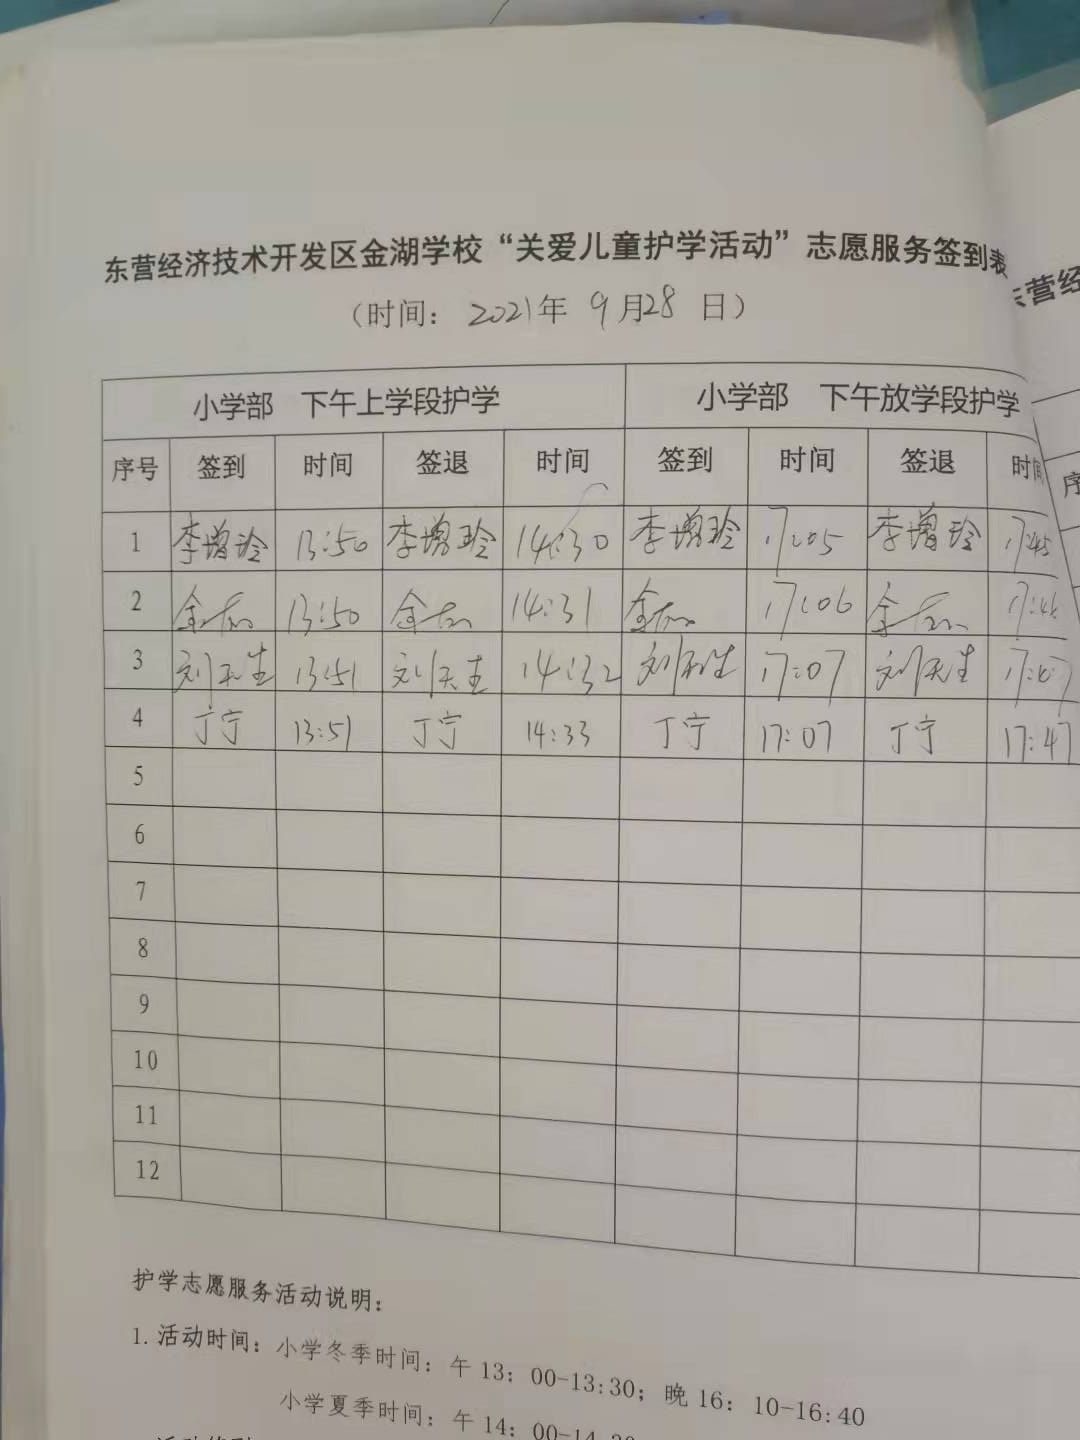 东营经济技术开发区金湖学校“关爱儿童护学活动”志愿服务签到表
（时间：2021年 9月28 日）
小学部 下午上学段护学 小学部 下午放学段护学
序号 签到 时间 签退 时间 签到 时间 签退 时间
1 李增玲 13:50 李增玲 14:30 李增玲 17:05 李增玲 17:45
2 13:50 14:31 17:06 17:46
3 刘天生 13:51 刘天生 14:32 刘天生 17:07 刘天生
4 丁宁 13:51 丁宁 14:33 丁宁 17:07 丁宁 17:47
5
6
7
8
9
10
11
12
护学志愿服务活动说明：
1. 活动时间：小学冬季时间：午 13：00-13:30；晚 16：10-16:40
小学夏季时间：午 14：00-14
东营经
序